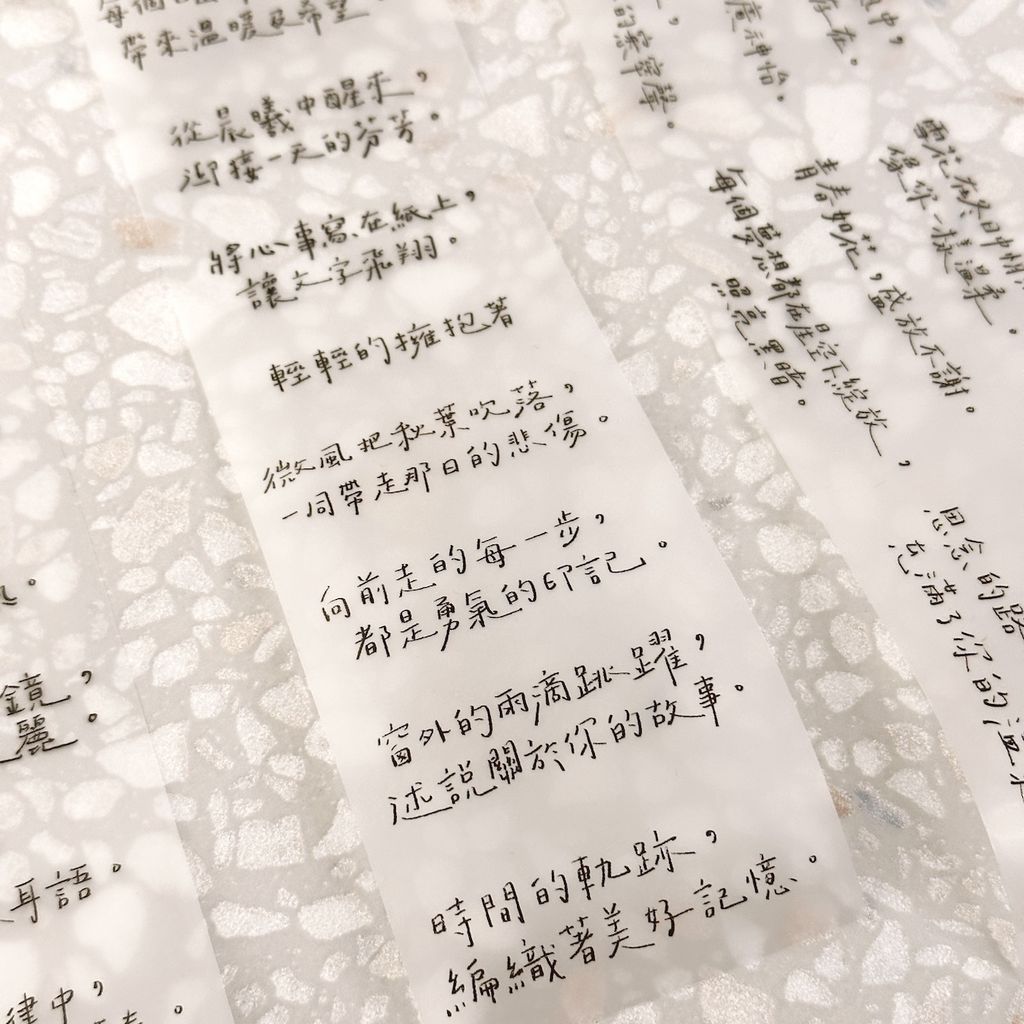 每個
帶來溫暖及希望
從晨曦中醒來，
迎接一天的芬芳。
將心事寫在紙上，
讓文字飛翔。
輕輕的擁抱著
微風把秋葉吹落，
一同帶走那日的悲傷。
向前走的每一步，
都是勇氣的印記。
窗外的雨滴跳躍，
述說關於你的故事。
時間的軌跡，
編織著美好記憶。
中，
存在。
神怡。
的窸窣聲。
雪花在冬日中
像你一樣溫柔。
青春如花，盛放不謝。
每個夢想都在星空下綻放，
照亮黑暗。
思念的路
充滿了你的溫
鏡，
麗。
耳語。
律中，